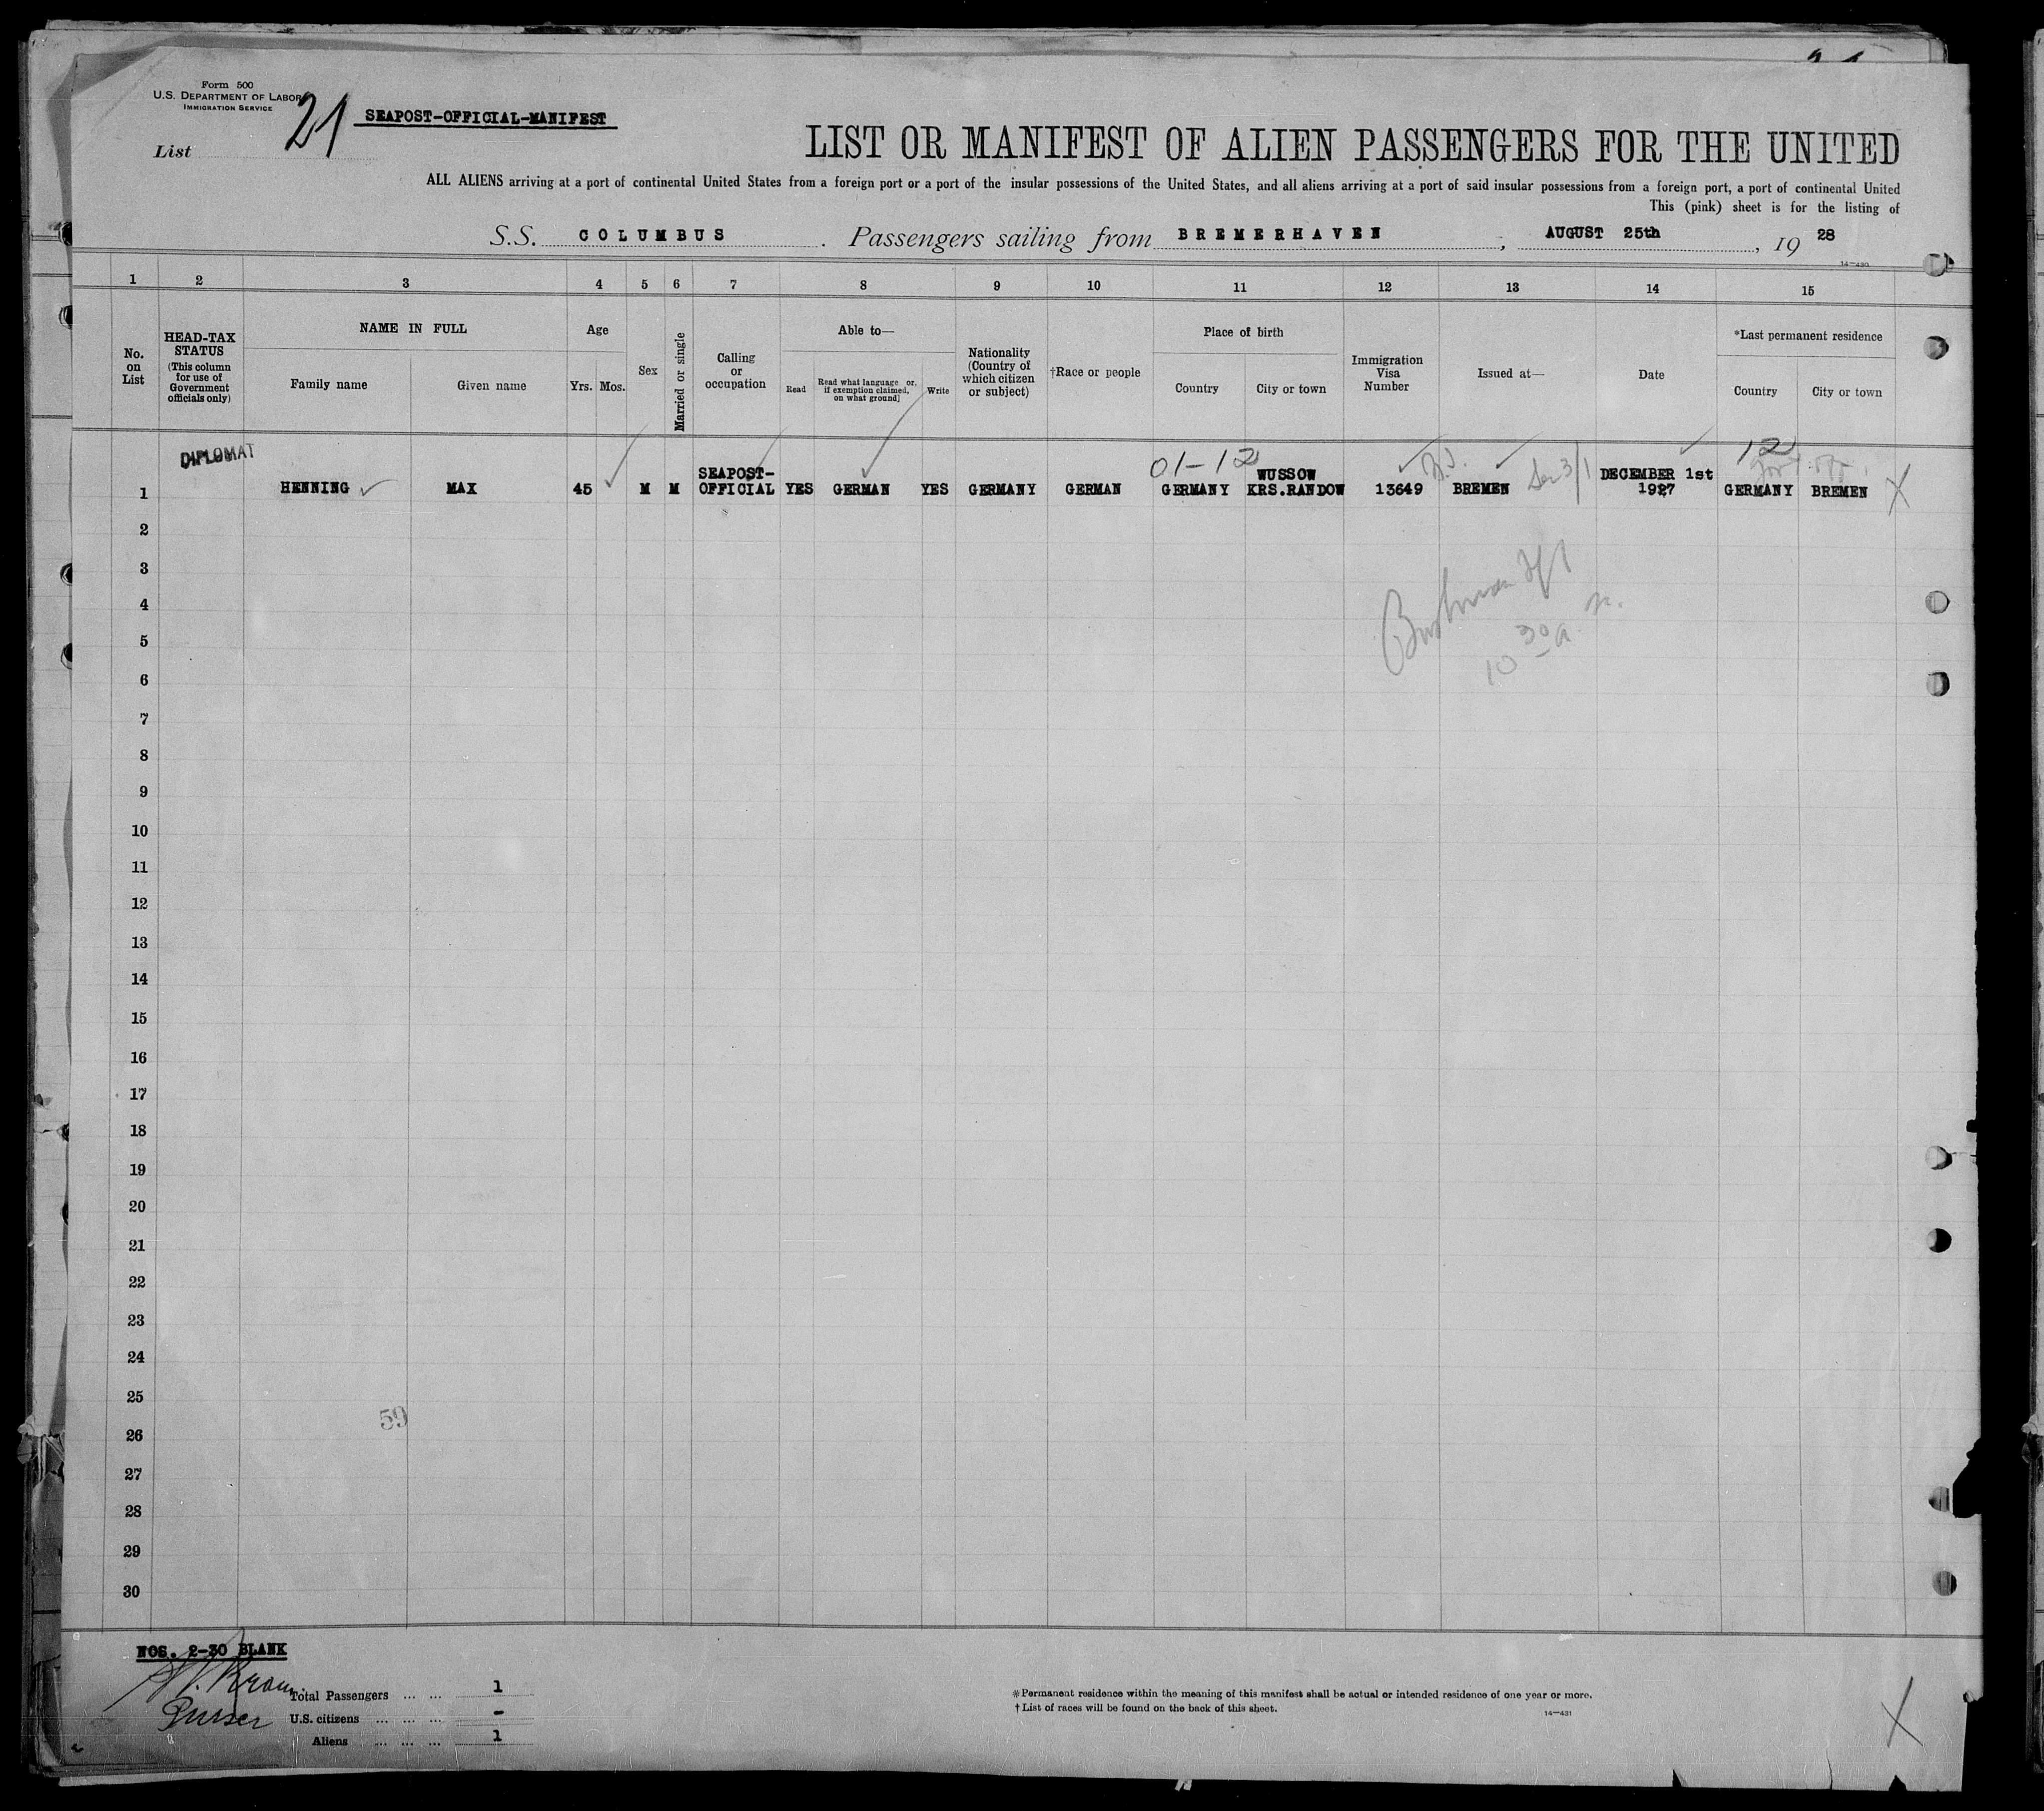 Form 500
U.S. DEPARTMENT OF LABOR
IMMIGRATION SERVICE
21
SEAPOST-OFFICIAL-MANIFEST
List
LIST OR MANIFEST OF ALIEN PASSENGERS FOR THE UNITED
ALL ALIENS arriving at a port of continental United States from a foreign port or a port of the insular possessions of the United States, and all aliens arriving at a port of said insular possessions from a foreign port, a port of continental United
This (pink) sheet is for the listing of
S.S. COLUMBUS . Passengers sailing from BREMERHAVEN , AUGUST 25th , 19 28
14-430
1 2 3 4 5 6 7 8 9 10 11 12 13 14 15
No. on List
HEAD-TAX STATUS
(This column for use of Government officials only)
NAME IN FULL
Family name
Given name
Age
Yrs.
Mos.
Sex
Married or single
Calling or occupation
Able to—
Read
Read what language or, if exemption claimed, on what ground]
Write
Nationality (Country of which citizen or subject)
†Race or people
Place of birth
Country
City or town
Immigration Visa Number
Issued at—
Date
*Last permanent residence
Country
City or town
DIPLOMAT
01-12
12
1 HENNING MAX 45 M M SEAPOST-OFFICIAL YES GERMAN YES GERMANY GERMAN GERMANY WUSSOW KRS.RANDOW 13649 BREMEN DECEMBER 1st 1927 GERMANY BREMEN
2
3
4
5
6
7
8
9
10
11
12
13
14
15
16
17
18
19
20
21
22
23
24
25
26
27
28
29
30
10 30 a
59
NOS. 2-30 BLANK
Purser
Total Passengers ... ... 1
U.S. citizens ... ... ... -
Aliens ... ... ... 1
*Permanent residence within the meaning of this manifest shall be actual or intended residence of one year or more.
†List of races will be found on the back of this sheet.
14-431